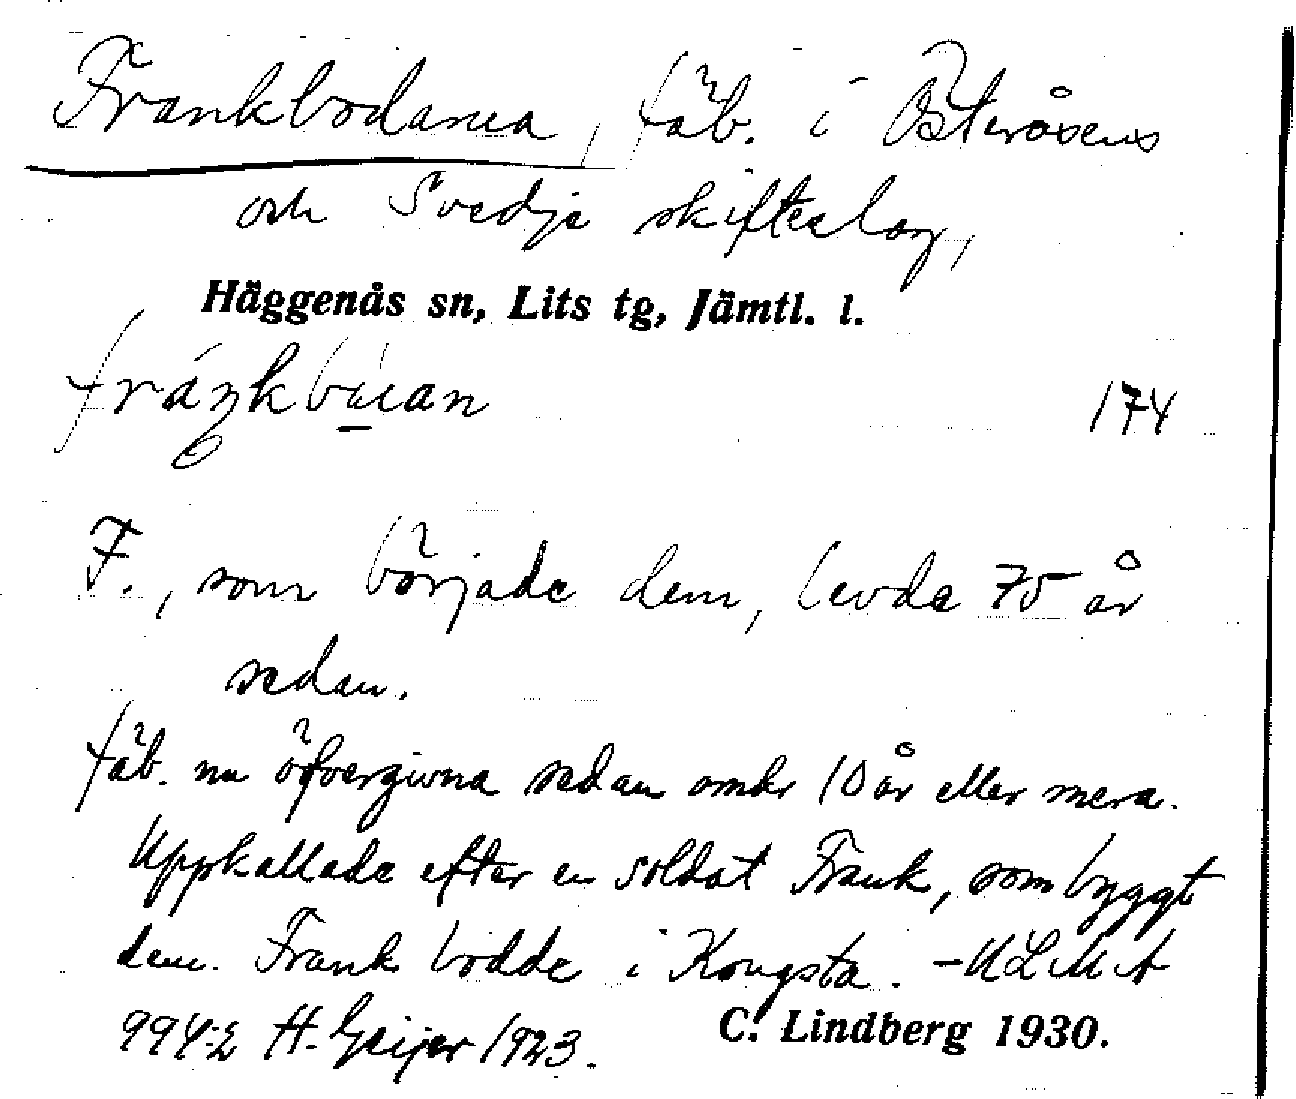 Frankbodarna, fäb. i Österåsens
och Svedje skifteslag,
Häggenås sn, Lits tg, Jämtl. l.
174
F., som började dem, levde 75 år
sedan.
fäb. nu öfvergivna sedan omkr 10 år eller mera.
Uppkallade efter en soldat Frank, som byggt
dem. Frank bodde i Kougsta. - ULMA
994:2 H. Geijer 1923. C. Lindberg 1930.